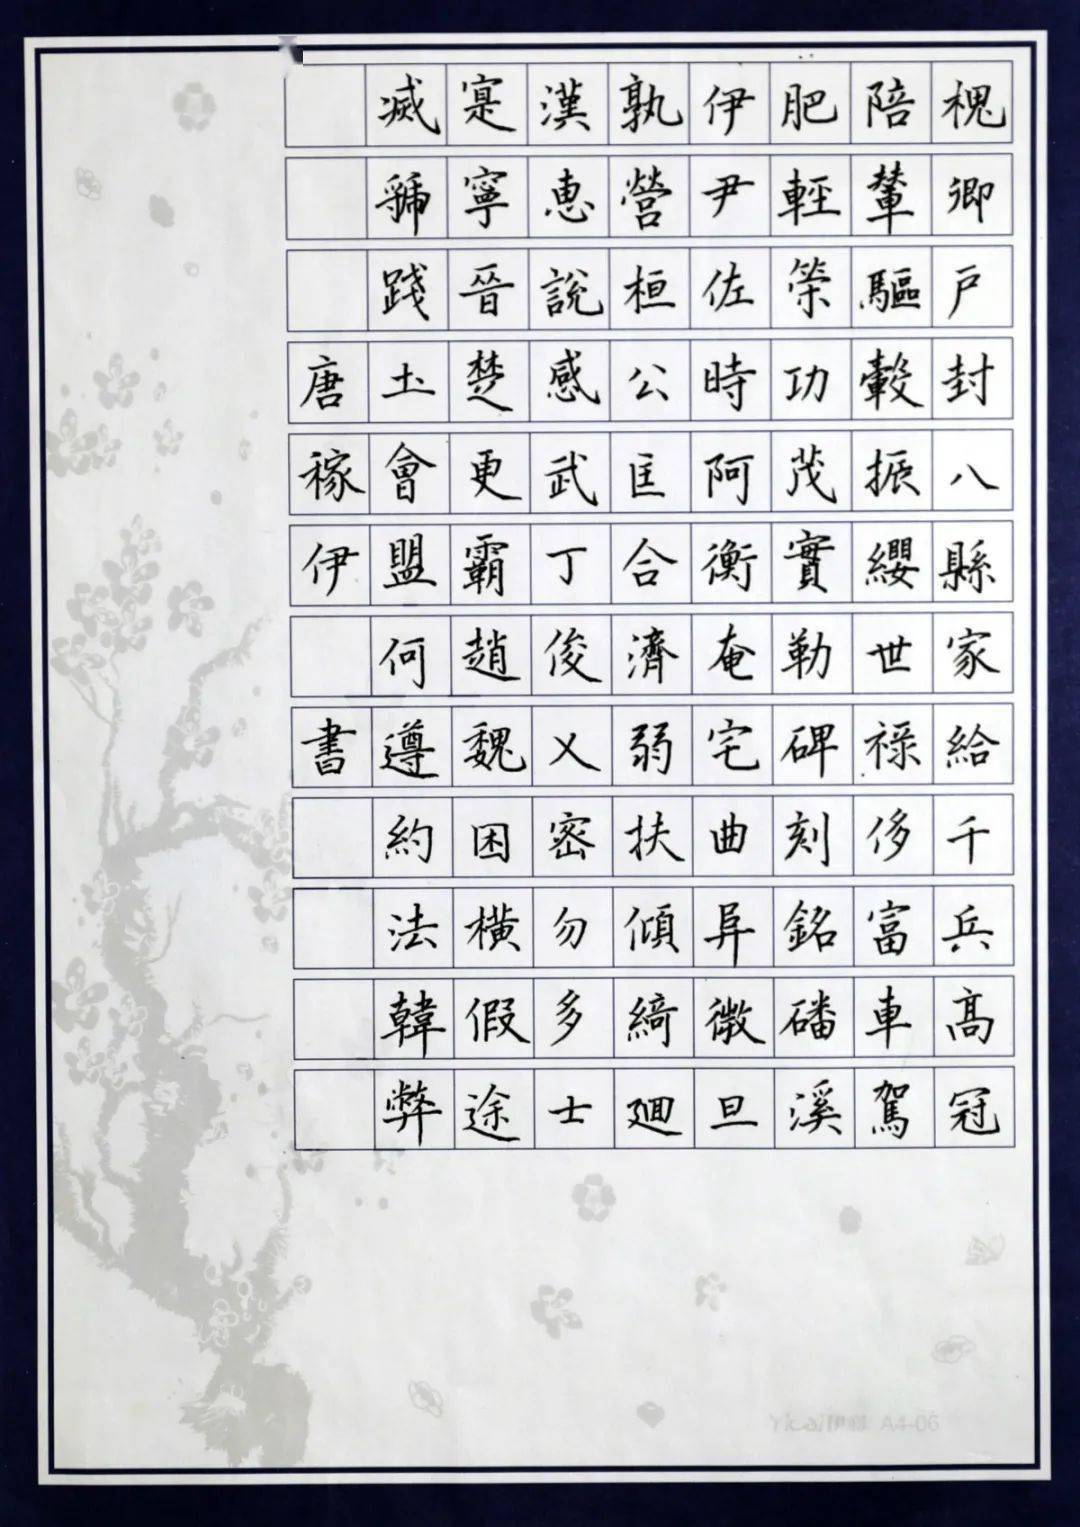 槐卿戶封八縣家給千兵高冠
陪輦驅轂振纓世祿侈富車駕
肥輕策功茂實勒碑刻銘磻溪
伊尹佐時阿衡奄宅曲阜微旦
孰營桓公匡合濟弱扶傾綺迴
漢惠說感武丁俊乂密勿多士
寔寧晉楚更霸趙魏困橫假途
滅虢踐土會盟何遵約法韓弊
唐稼伊 書
A4-06